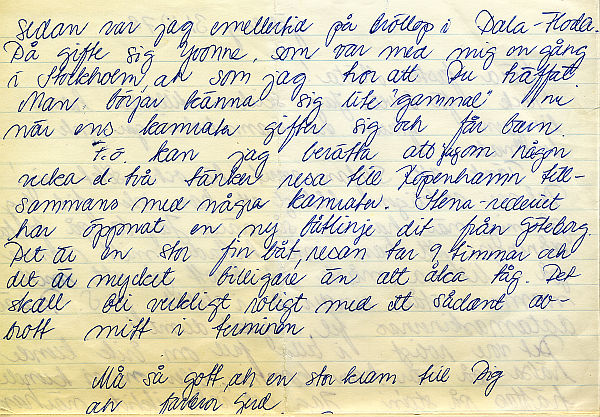 Sedan var jag emellertid på bröllop i Dala-Floda.
Då gifte sig Yvonne, som var med mig en gång
i Stockholm, och som jag tror att Du träffat.
Man börjar känna sig lite "gammal" nu
när ens kamrater gifter sig och får barn.
F.ö. kan jag berätta att jag om någon
vecka el. två tänker resa till Köpenhamn till-
sammans med några kamrater. Stena-rederiet
har öppnat en ny båtlinje dit från Göteborg.
Det är en stor fin båt, resan tar 9 timmar och
det är mycket billigare än att åka tåg. Det
skall bli verkligt roligt med ett sådant av-
brott mitt i terminen
Må så gott, och en stor kram till Dig
av